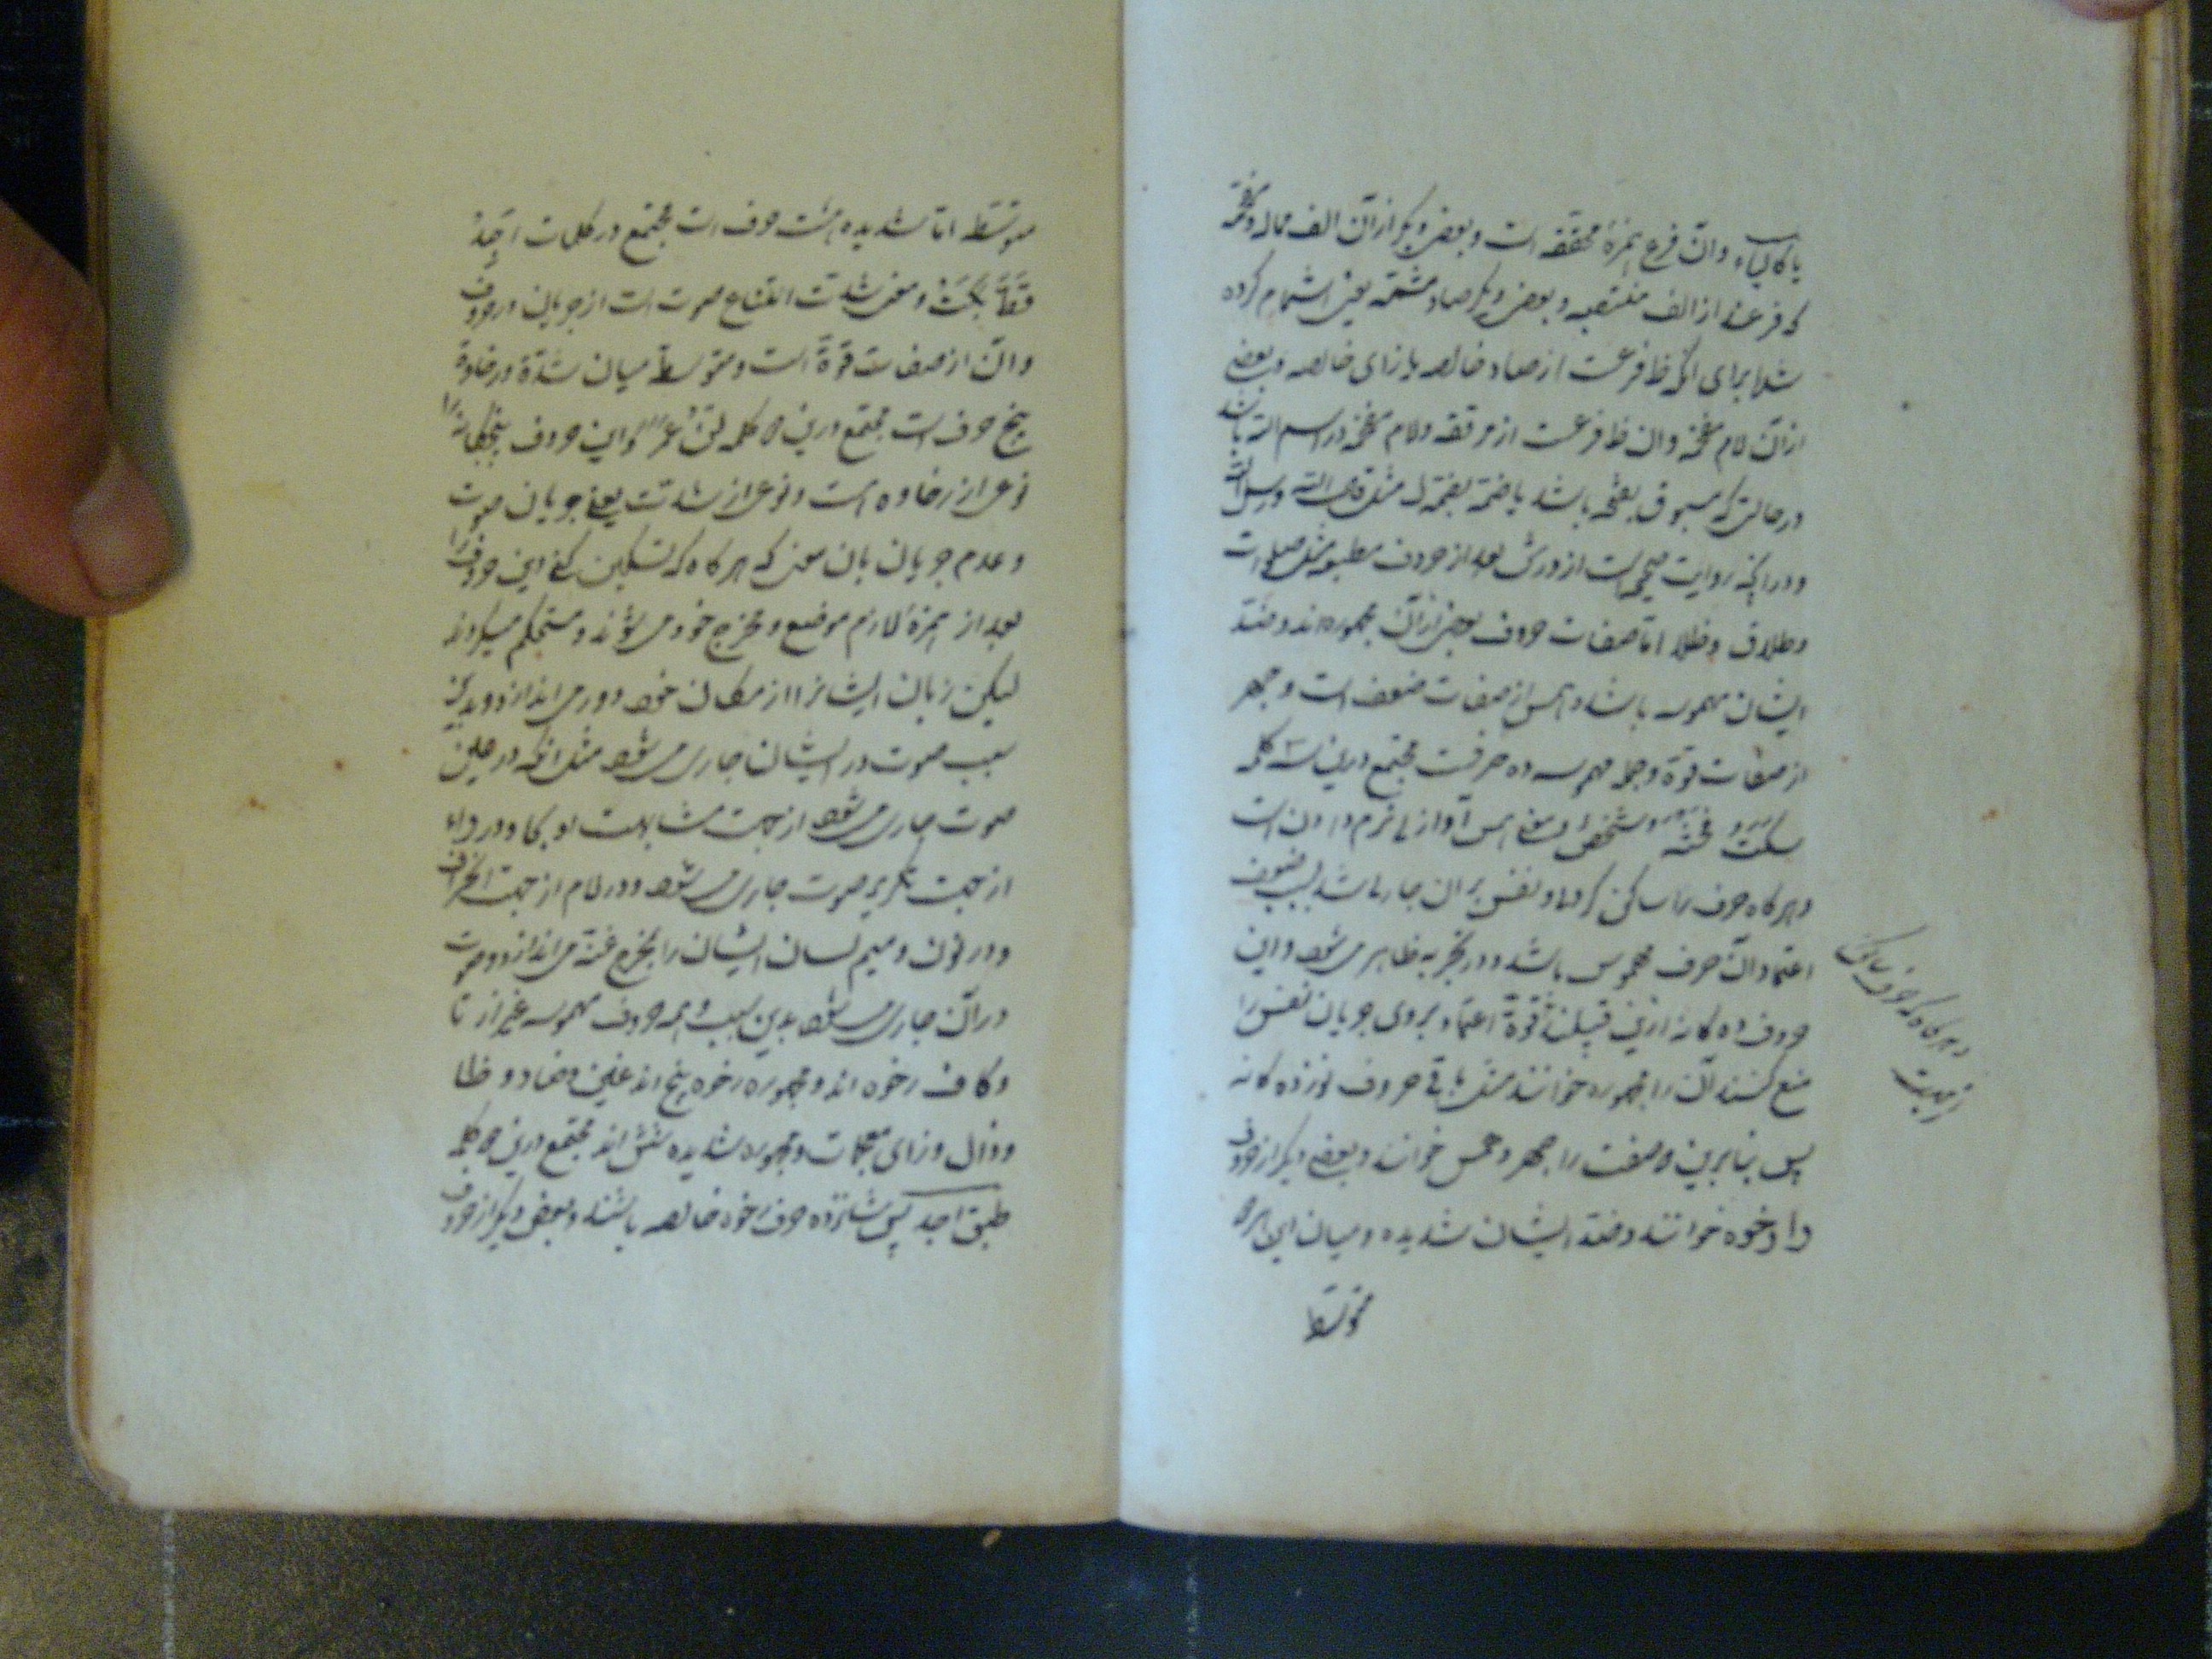 یا کالیاء و آن فرع همزهٔ محققه است و بعضی دیکر از آن الف مماله و مفخمه
که فرعند از الف منتصبه و بعضی دیکر صاد مشمّه یعنی اشمام کرده
شده برای که فرعست از صاد خالصه یا زای خالصه و بعضی
از آن لام مفخمه و آن فرعست از مرققه و لام مفخمه در اسم الله باشد
در حالتی که مسبوق بفتحه باشد یا ضمه مثل قال الله و رسل الله
و در آنچه روایت صحیح است از ورش بعد از حروف مطبقه مثل صلوات
و طلاق و ظلام اما صفات حروف بعضی از آن مجهوره‌اند و ضد
ایشان مهموسه باشد و همس از صفات ضعف است و جهر
از صفات قوة و جمله مهموسه ده حرفست مجتمع درین سه کلمه
سکت فحثه و شخص و معنی همس آواز نرم دادن است
و هرکاه حرف را ساکن کردی و نفس بر آن جاری باشد بسبب ضعف
اعتماد آن حرف مهموس باشد و در تجربه ظاهر می شود و این
حروف ده کانه ازین قبیلند و قوة اعتماد بر وی جریان نفس را
منع کنند آن را مجهوره خوانند مثل باقی حروف نوزده کانه
پس بنابرین صفت را جهر و همس خوانند و بعضی دیکر از حروف
را رخوه خوانند و ضد ایشان شدیده و میان این هر
متوسّط
و هرکاه که حرف ساکن
متوسّط اما شدیده هشت حرف است مجتمع در کلمات اجد
قط بکت و معنی شدت امتناع صوت است از جریان در حروف
و آن از صفات قوة است و متوسط میان شدة و رخاوة
پنج حرف است مجتمع درین کلمه لن عمر و این حروف پنجکانه را
نوعی از رخاوه است و نوعی از شدت یعنی جریان صوت
و عدم جریان بان معنی که هرکاه که تسکین کنی این حروف را
بعد از همزهٔ لازم موضع و مخرج خود می شوند و مستحکم میکردند
لیکن زبان ایشانرا از مکان خود دور می اندازد و بدین
سبب صوت در ایشان جاری می شود مثل آنکه در عین
صوت جاری می شود از جهت مشابهت او بحا و در راء
از جهت تکریر صوت جاری می شود و در لام از جهت انحراف
و در نون و میم لسان ایشان را بمخرج غنه می اندازد و صوت
در آن جاری می شود بدین سبب و همه حروف مهموسه غیر از تا
و کاف رخوه اند و مجهوره رخوه پنج اند غین و ضاد و ظا
و ذال و زای معجمات و مجهوره شدیده شش اند مجتمع درین کلمه
طبق اجد پس شانزده حرف رخوه خالصه باشند و بعضی دیکر از حروف